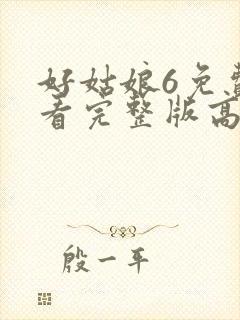 好姑娘6免费
看完整版高
殷一平